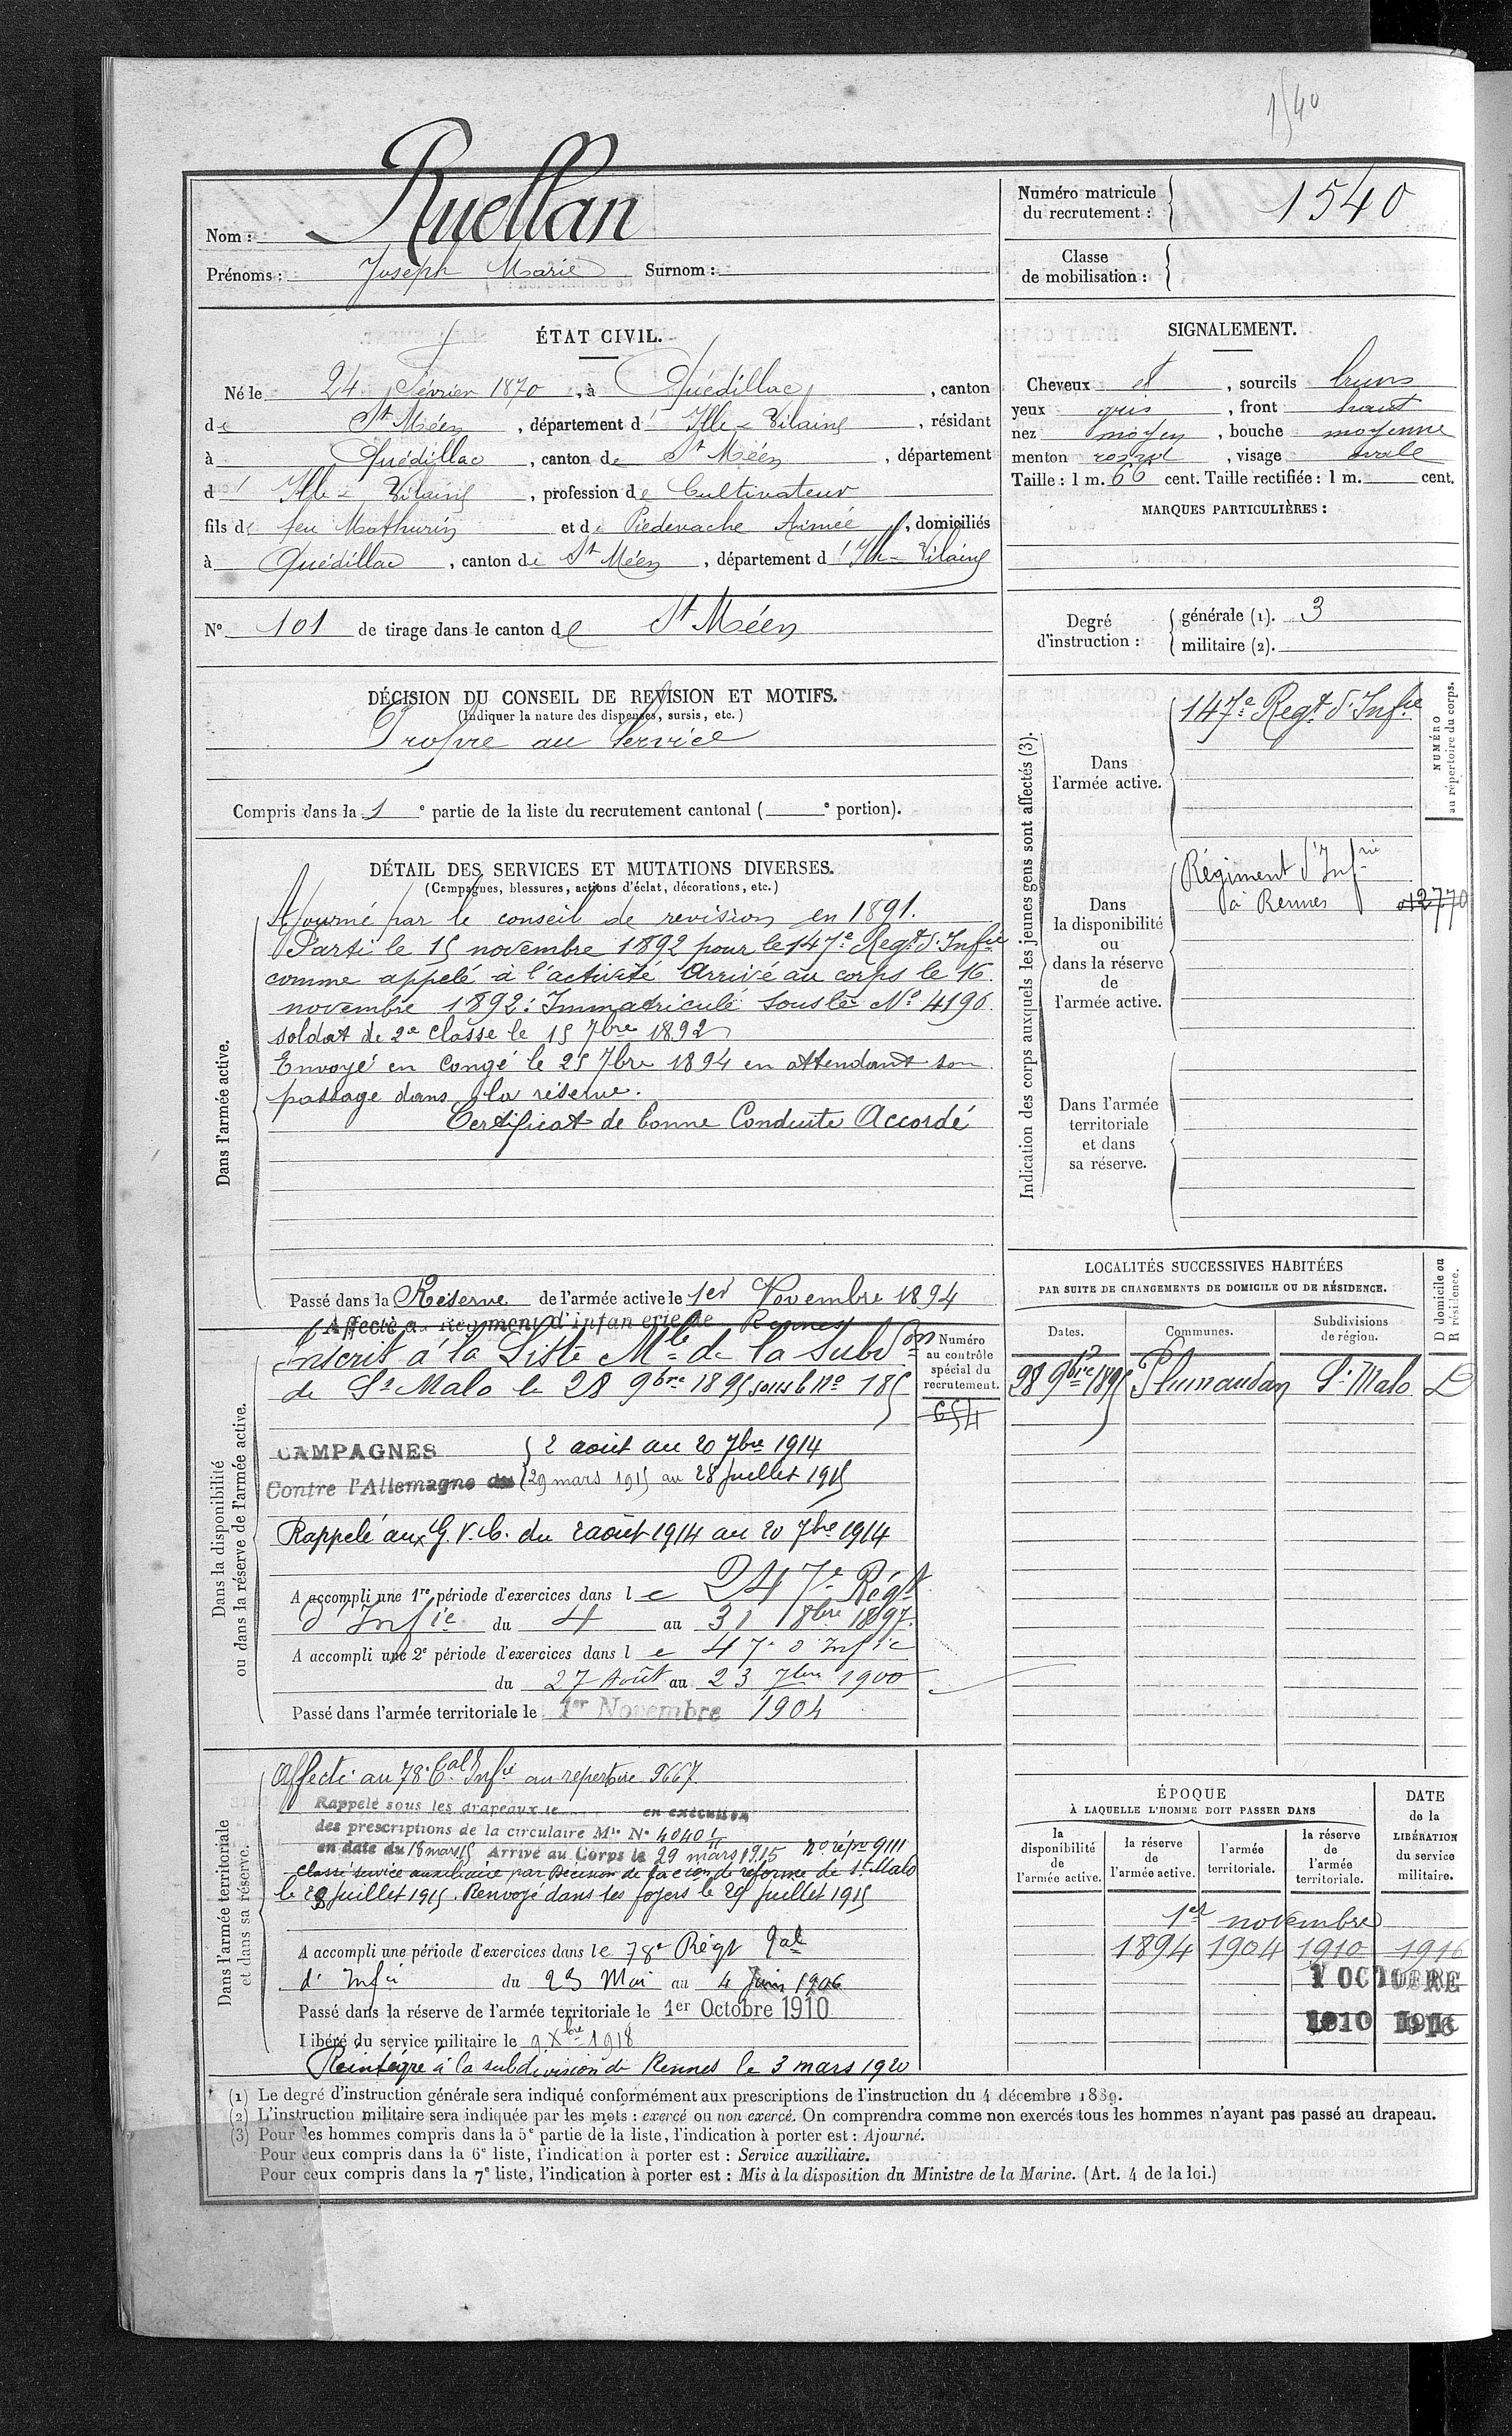 1540
Nom : Ruellan
Prénoms : Joseph Marie Surnom :
Numéro matricule du recrutement : 1540
Classe de mobilisation :
ÉTAT CIVIL.
Né le 24 Février 1870, à Quédillac, canton
de St Méen, département d' Ille-Vilaine, résidant
à Quédillac, canton de St Méen, département
d' Ille-Vilaine, profession de Cultivateur
fils de feu Mathurin et de Piedevache Aimée, domiciliés
à Quédillac, canton de St Méen, département d' Ille-Vilaine
N° 101 de tirage dans le canton de St Méen
SIGNALEMENT.
Cheveux et, sourcils bruns
yeux gris, front haut
nez moyen, bouche moyenne
menton rond, visage ovale
Taille : 1 m. 66 cent. Taille rectifiée : 1 m. cent.
MARQUES PARTICULIÈRES :
Degré d'instruction : générale (1). 3
militaire (2).
DÉCISION DU CONSEIL DE REVISION ET MOTIFS.
(Indiquer la nature des dispenses, sursis, etc.)
Propre au Service
Compris dans la 1e partie de la liste du recrutement cantonal ( e portion).
DÉTAIL DES SERVICES ET MUTATIONS DIVERSES.
(Campagnes, blessures, actions d'éclat, décorations, etc.)
Dans l'armée active.
Ajourné par le conseil de revision en 1891.
Parti le 15 novembre 1892 pour le 147e Regt d'Infie
comme appelé à l'activité Arrivé au corps le 16
novembre 1892 : Immatriculé sous le No 4190
soldat de 2e classe le 15 7bre 1892
Envoyé en Congé le 25 7bre 1894 en attendant son
passage dans la réserve.
Certificat de bonne Conduite Accordé
Passé dans la Réserve de l'armée active le 1er Novembre 1894
Affecté au Régiment d'infanterie de Rennes
Dans la disponibilité
ou dans la réserve de l'armée active.
Inscrit à la Liste Mle de la Subdon
de St Malo le 28 9bre 1895 sous le No 185
Numéro
au contrôle
spécial du
recrutement.
654
CAMPAGNES 2 août au 20 7bre 1914
Contre l'Allemagne du 29 mars 1915 au 28 juillet 1915
Rappelé aux G.V.C. du 2 août 1914 au 20 7bre 1914
A accompli une 1re période d'exercices dans le 247e Régt
d'Infie du 4 au 31 8bre 1897.
A accompli une 2e période d'exercices dans le 47e d'Infie
du 27 Août au 23 7bre 1900
Passé dans l'armée territoriale le 1er Novembre 1904
Dans l'armée territoriale
et dans sa réserve.
Affecté au 78e tal Infie au repertoire 9667
Rappelé sous les drapeaux le en exécution
des prescriptions de la circulaire Mlle N° 4040 1/11
en date du 18 mars 15 Arrivé au Corps le 29 mars 1915 no répre 9111
Classé service auxiliaire par Décision de la con de réforme de St Malo
le 28 juillet 1915. Renvoyé dans ses foyers le 29 juillet 1915
A accompli une période d'exercices dans le 78e Régt tal
d'Infie du 23 Mai au 4 Juin 1906
Passé dans la réserve de l'armée territoriale le 1er Octobre 1910
Libéré du service militaire le 9 Xbre 1918
Réintégré à la subdivision de Rennes le 3 mars 1920
Indication des corps auxquels les jeunes gens sont affectés (3).
NUMÉRO
au répertoire du corps.
Dans
l'armée active.
147e Regt d'Infie
Dans
la disponibilité
ou
dans la réserve
de
l'armée active.
Régiment d'Infrie
à Rennes
12770
Dans l'armée
territoriale
et dans
sa réserve.
LOCALITÉS SUCCESSIVES HABITÉES
PAR SUITE DE CHANGEMENTS DE DOMICILE OU DE RÉSIDENCE.
D domicile ou
R résidence.
Dates. Communes. Subdivisions de région.
28 9bre 1895 Plumaudan St Malo D
ÉPOQUE
À LAQUELLE L'HOMME DOIT PASSER DANS
la disponibilité de l'armée active.
la réserve de l'armée active.
l'armée territoriale.
la réserve de l'armée territoriale.
DATE de la LIBÉRATION du service militaire.
1er novembre
1894 1904 1910 1916
1 OCTOBRE
1910 1916
(1) Le degré d'instruction générale sera indiqué conformément aux prescriptions de l'instruction du 4 décembre 1889.
(2) L'instruction militaire sera indiquée par les mots : exercé ou non exercé. On comprendra comme non exercés tous les hommes n'ayant pas passé au drapeau.
(3) Pour les hommes compris dans la 5e partie de la liste, l'indication à porter est : Ajourné.
Pour ceux compris dans la 6e liste, l'indication à porter est : Service auxiliaire.
Pour ceux compris dans la 7e liste, l'indication à porter est : Mis à la disposition du Ministre de la Marine. (Art. 4 de la loi.)